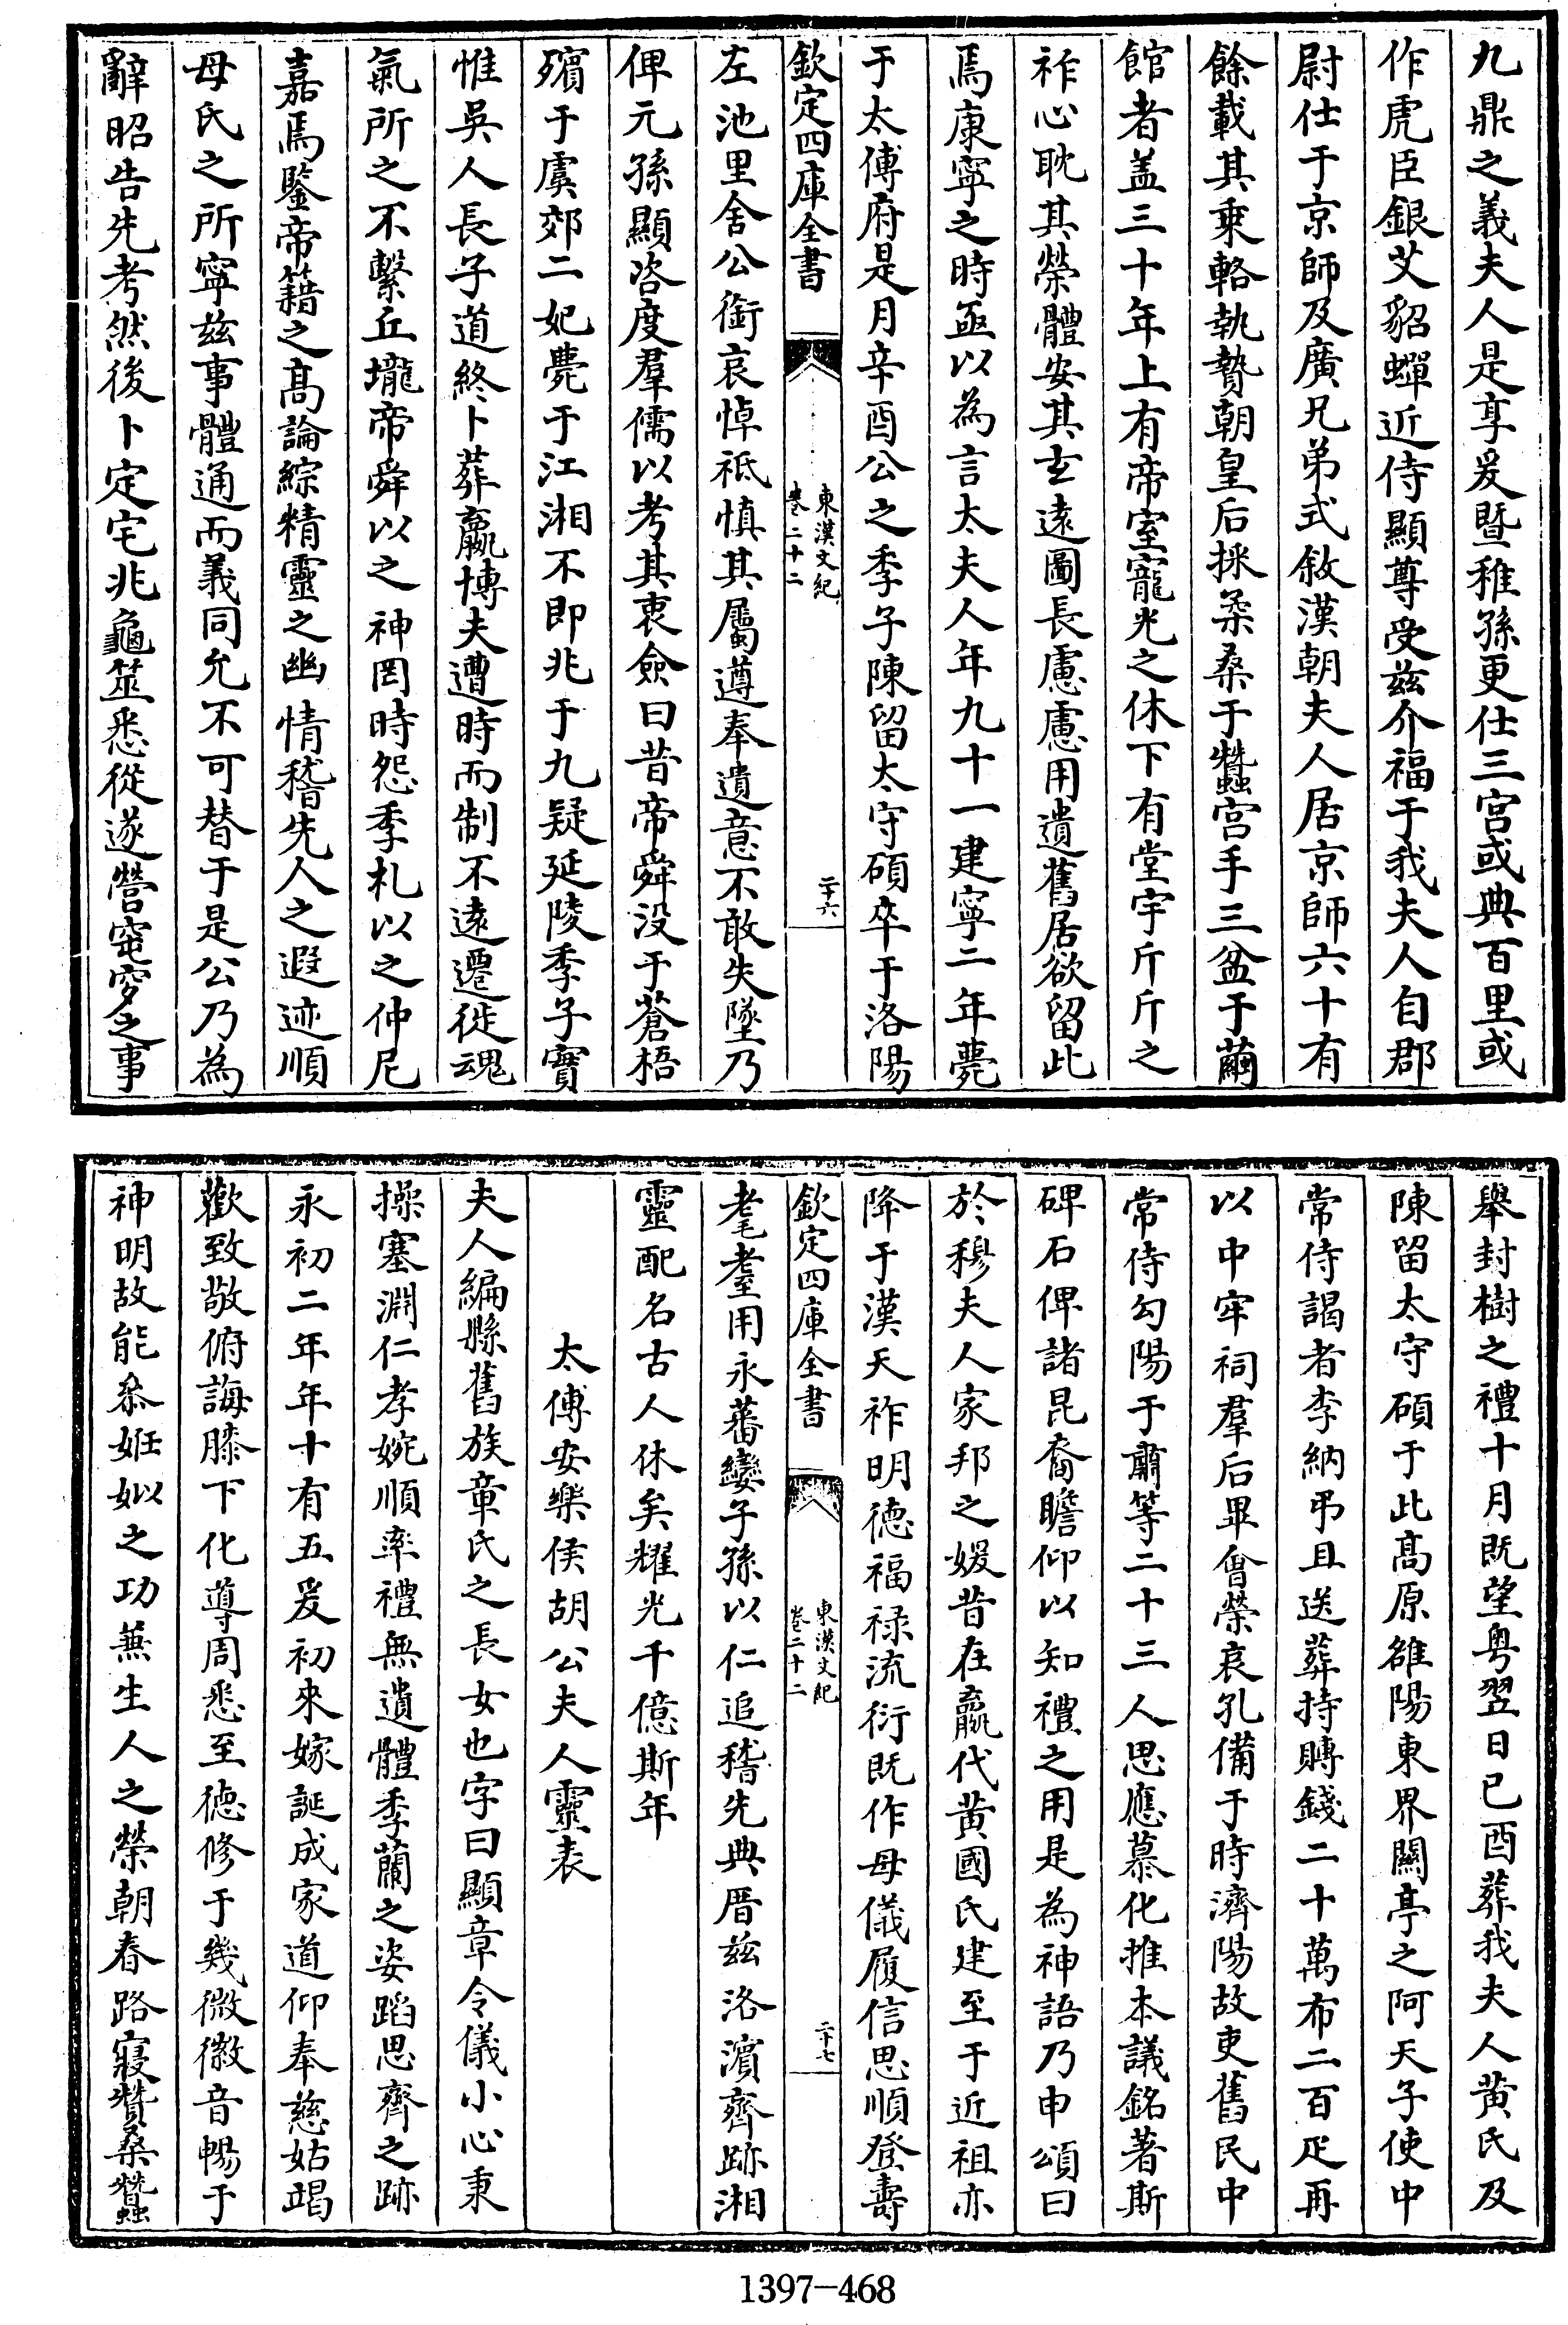 九鼎之義夫人是享爰暨稚孫更仕三宫或典百里或
作虎臣銀艾貂蟬近侍顯尊受兹介福于我夫人自郡
尉仕于京師及廣兄弟式敘漢朝夫人居京師六十有
餘載其乘輅執贄朝皇后採柔桑于蠶宫手三盆于繭
館者盖三十年上有帝室寵光之休下有堂宇斤斤之
祚心耽其榮體安其玄逺圖長慮慮用遺舊居欲留此
焉康寧之時亟以為言太夫人年九十一建寧二年薨
于太傅府是月辛酉公之季子陳留太守碩卒于洛陽
欽定四庫全書
東漢文紀
卷二十二
二十六
左池里舍公銜哀悼祗慎其屬遵奉遺意不敢失墜乃
俾元孫顯咨度羣儒以考其衷僉曰昔帝舜没于蒼梧
殯于虞郊二妃薨于江湘不即兆于九疑延陵季子實
惟吳人長子道終卜葬嬴博夫遭時而制不逺遷徙魂
氣所之不繫丘壠帝舜以之神罔時怨季札以之仲尼
嘉焉鑒帝籍之髙論綜精靈之幽情稽先人之遐迹順
母氏之所寧兹事體通而義同允不可替于是公乃為
辭昭告先考然後卜定宅兆龜筮悉從遂營窀穸之事
舉封樹之禮十月既望粤翌日已酉葬我夫人黄氏及
陳留太守碩于此髙原雒陽東界闗亭之阿天子使中
常侍謁者李納弔且送葬持賻錢二十萬布二百疋再
以中牢祠羣后畢會榮哀孔備于時濟陽故吏舊民中
常侍勾陽于肅等二十三人思應慕化推本議銘著斯
碑石俾諸昆裔瞻仰以知禮之用是為神誥乃申頌曰
於穆夫人家邦之媛昔在嬴代黄國氏建至于近祖亦
降于漢天祚明徳福禄流衍既作母儀履信思順登壽
欽定四庫全書
東漢文紀
卷二十二
二十七
耄耋用永蕃孌子孫以仁追稽先典厝兹洛濱齊跡湘
靈配名古人休矣耀光千億斯年
太傅安樂侯胡公夫人靈表
夫人編縣舊族章氏之長女也字曰顯章令儀小心秉
操塞淵仁孝婉順率禮無遺體季蘭之姿蹈思齊之跡
永初二年年十有五爰初來嫁誕成家道仰奉慈姑竭
歡致敬俯誨膝下化導周悉至徳修于幾微徽音暢于
神明故能參姙姒之功兼生人之榮朝春路寢贊桑蠶
1397-468